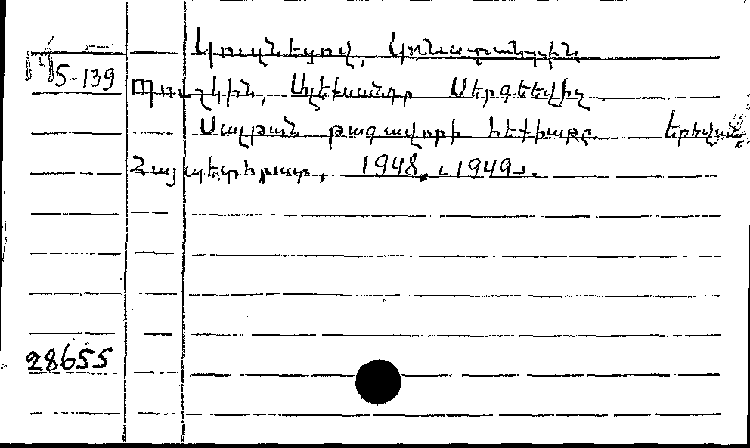 Կուզնեցով, Կոնստանտին
5-139 Պուշկին, Ալեքսանդր Սերգեևիչ.
Սալթան թագավորի հեքիաթը. Երևան
Հայպետհրատ, 1948. (1949).
28655